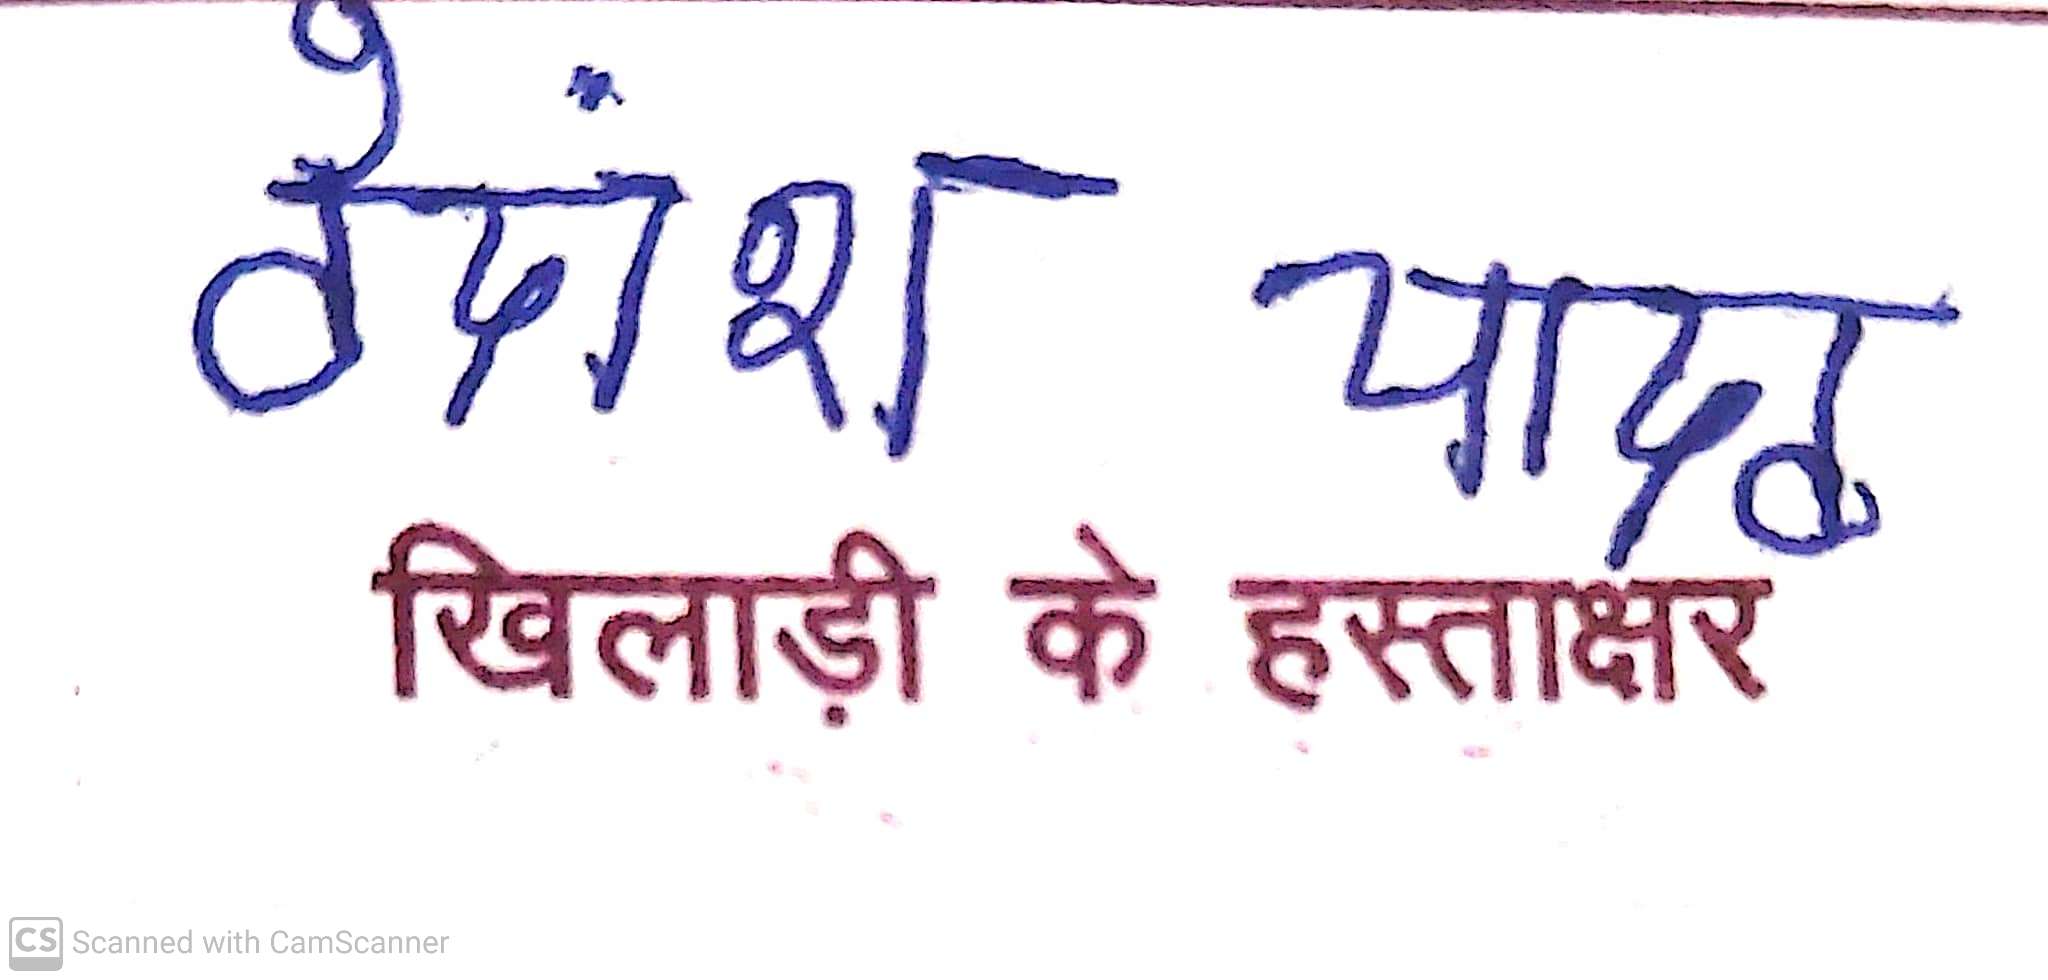 वेदांश यादव
खिलाड़ी के हस्ताक्षर
CS Scanned with CamScanner